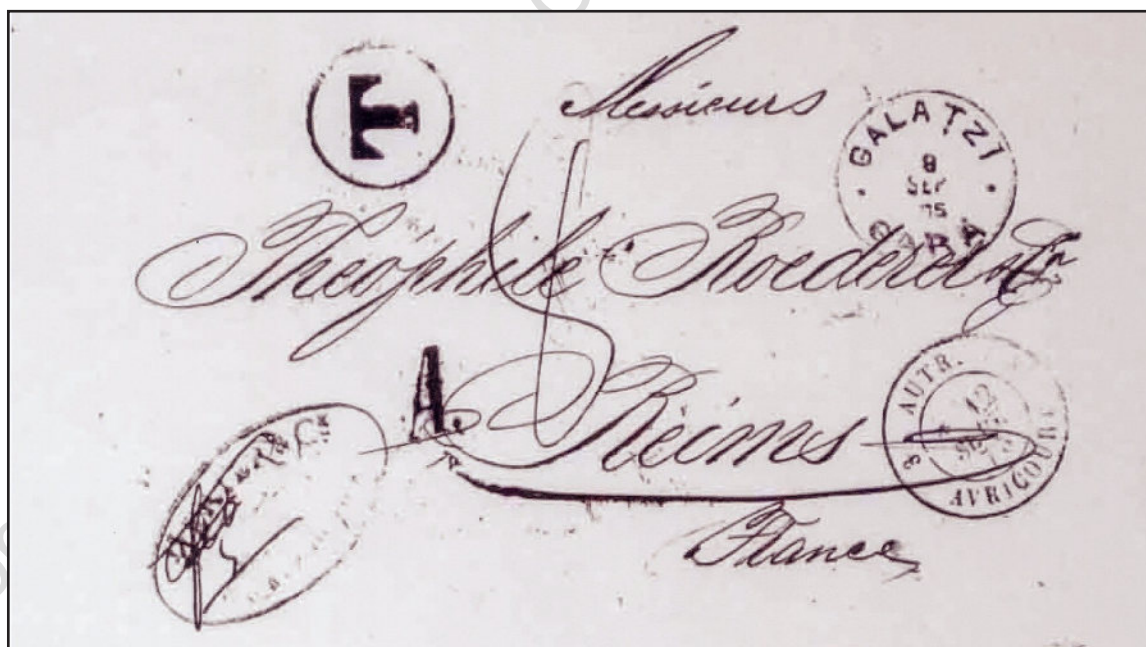 T
Messieurs
GALAȚZI
8
SEP
75
GARA
Théophile Roederer & Cn
A.
Reims
3 AUTR.
12
SEPT.
AVRICOURT
France